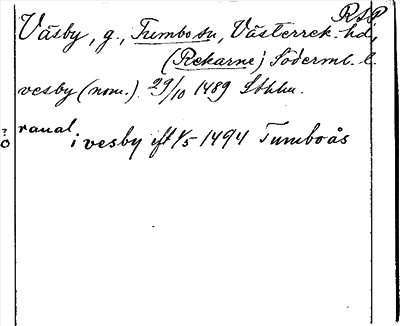 RSP
Väsby, g., Tumbo sn, Västerrek. hd,
(Rekarne) Söderml. l.
vesby (nom.) 29/10 1489 Sthlm.
raual
i vesby ift 1/5 1494 Tumboås